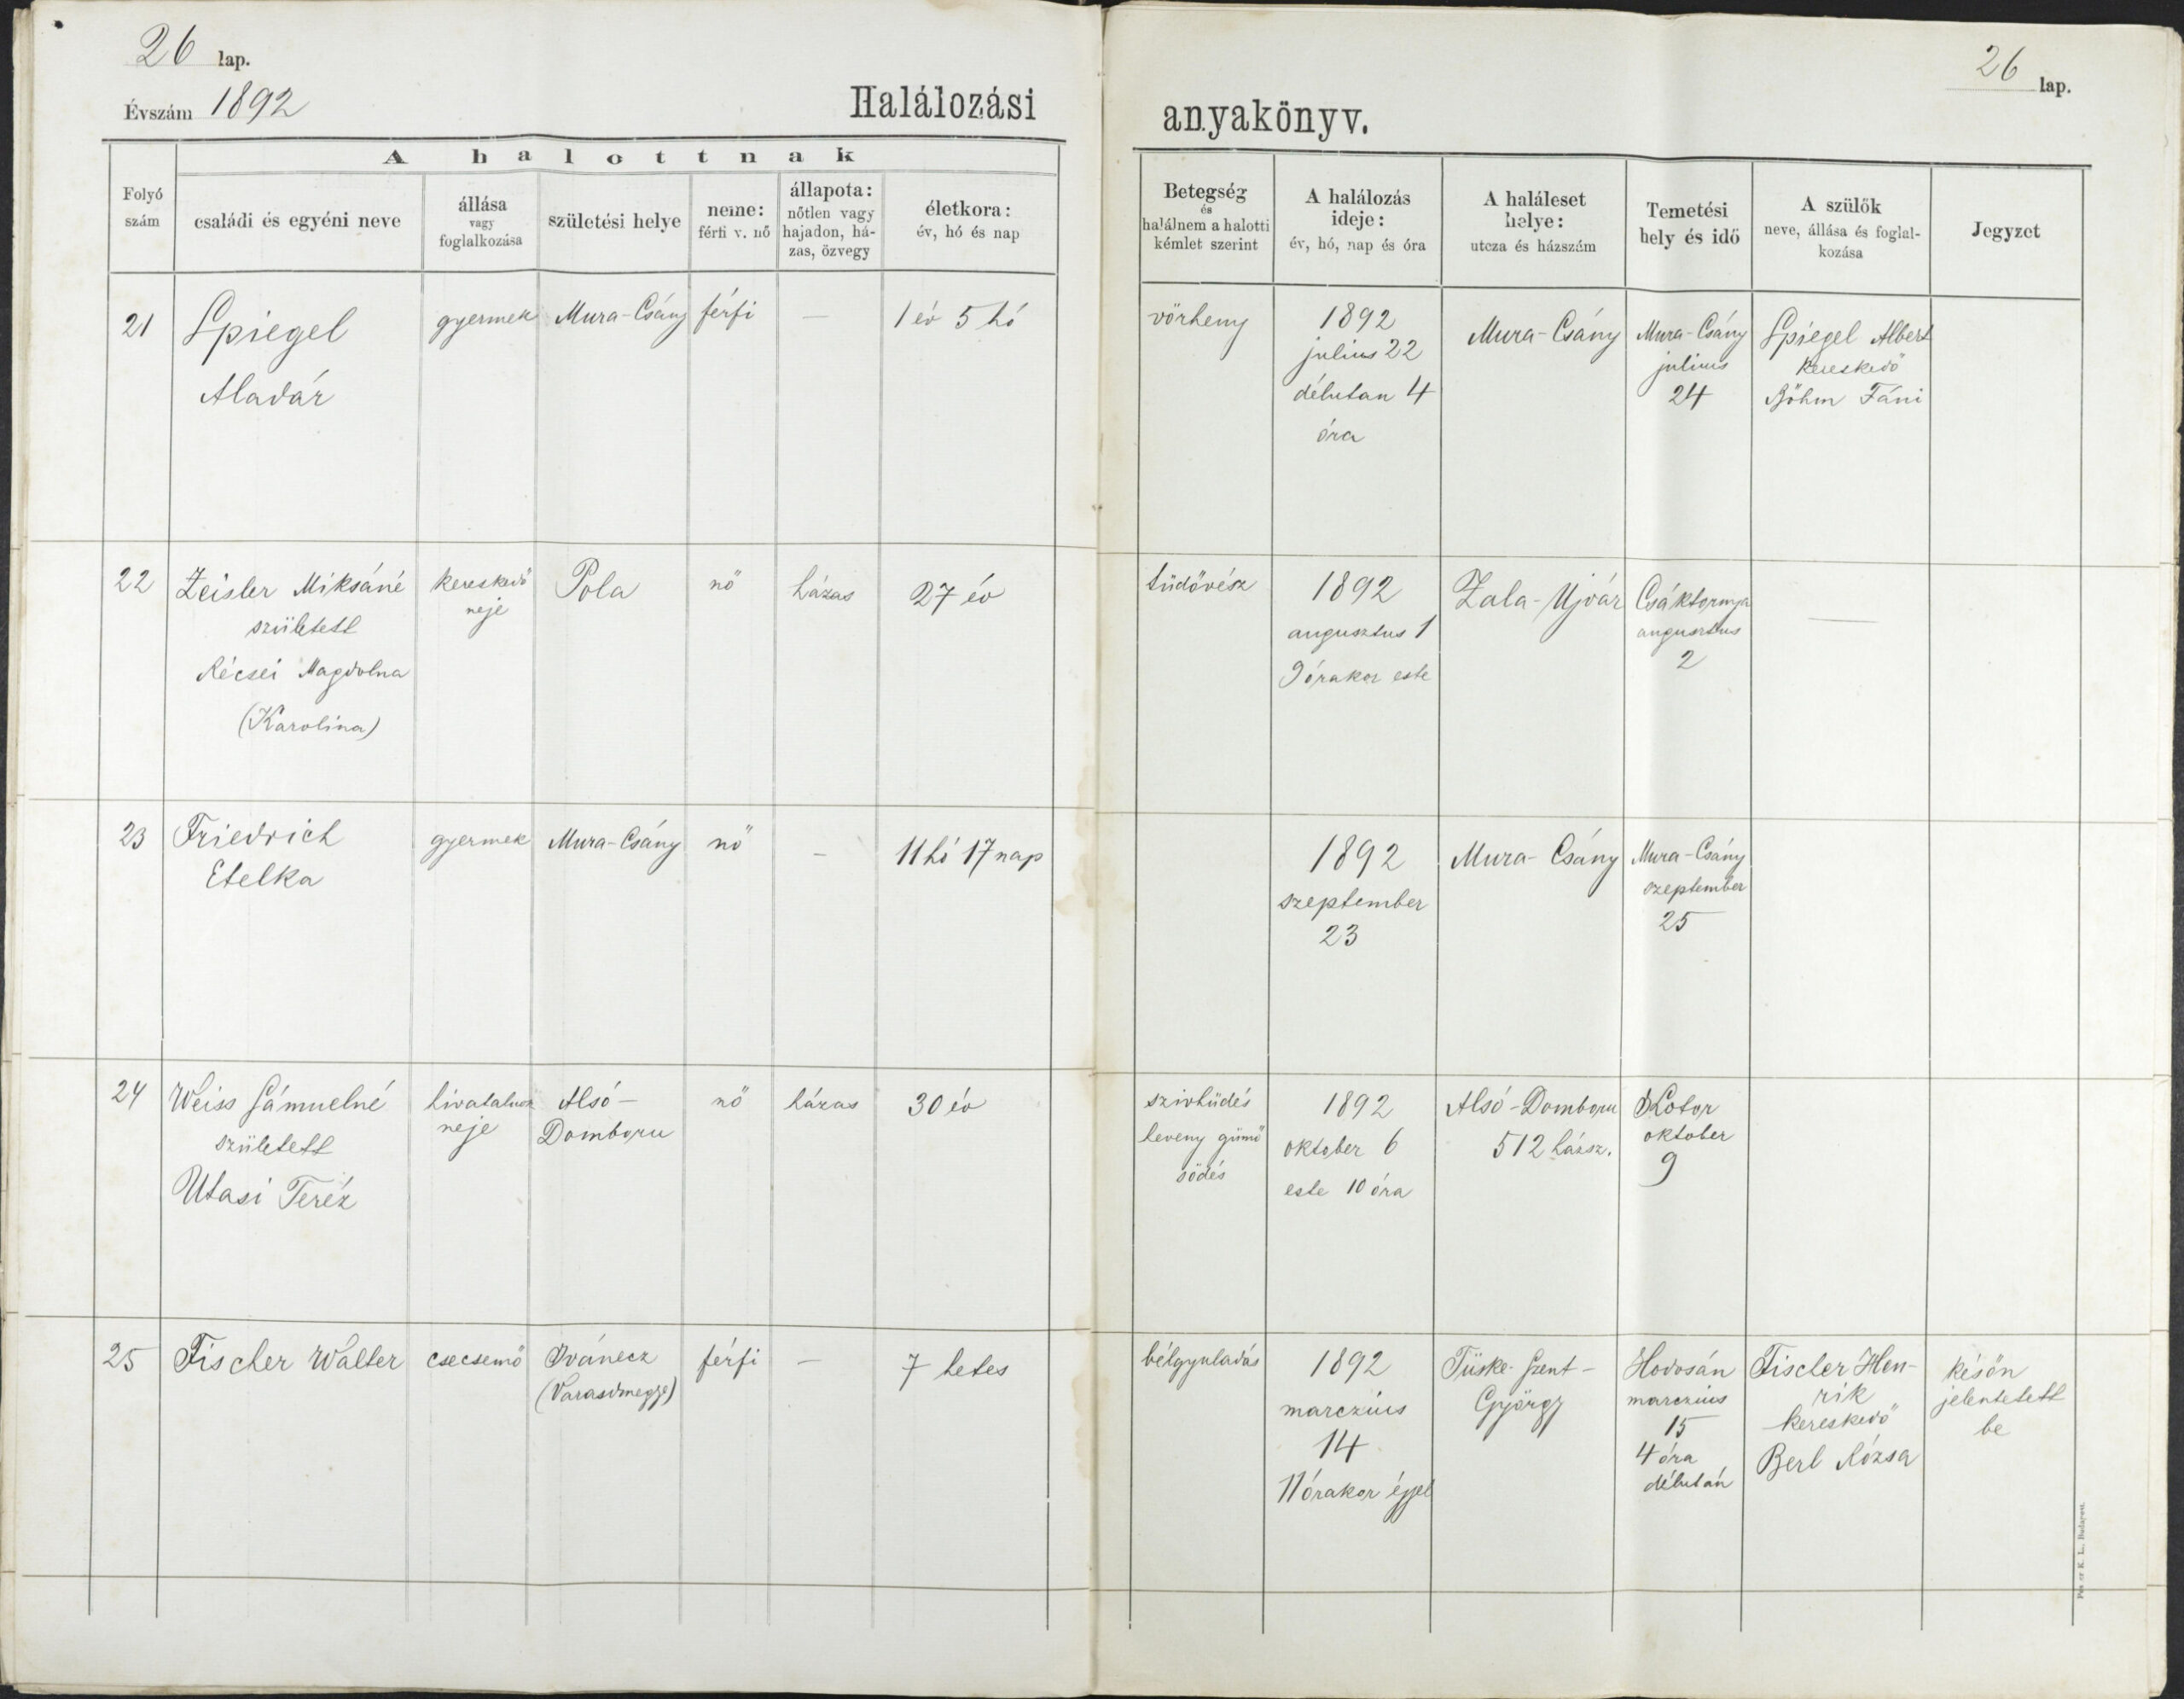 26 lap.
Évszám 1892
Halálozási
A halottnak
Folyó szám
családi és egyéni neve
állása vagy foglalkozása
születési helye
neme: férfi v. nő
állapota: nőtlen vagy hajadon, házas, özvegy
életkora: év, hó és nap
26 lap.
anyakönyv.
Betegség és halálnem a halotti kémlet szerint
A halálozás ideje: év, hó, nap és óra
A haláleset helye: utcza és házszám
Temetési hely és idő
A szülők neve, állása és foglalkozása
Jegyzet
21
Spiegel
Aladár
gyermek
Mura-Csány
férfi
—
1 év 5 hó
vörheny
1892
julius 22
délutan 4
óra
Mura-Csány
Mura-Csány
julius
24
Spiegel Albert
kereskedő
Böhm Fáni
22
Zeisler Miksáné
született
Récsei Magdolna
(Karolina)
kereskedő
neje
Pola
nő
házas
27 év
tüdővész
1892
augusztus 1
9 órakor este
Zala-Ujvár
Csáktornya
augusztus
2
—
23
Friedrich
Etelka
gyermek
Mura-Csány
nő
–
11 hó 17 nap
1892
szeptember
23
Mura-Csány
Mura-Csány
szeptember
25
24
Weiss Sámuelné
született
Utasi Teréz
hivatalnok
neje
Alsó-
Domboru
nő
házas
30 év
szivhüdés
heveny gümő
södés
1892
oktober 6
este 10 óra
Alsó-Domboru
512 házsz.
Kotor
oktober
9
25
Fischer Walter
csecsemő
Ivánecz
(Varasdmegye)
férfi
—
7 hetes
bélgyuladás
1892
marczius
14
11 órakor éjjel
Tüske-Szent-
György
Hodosán
marczius
15
4 óra
délután
Fischer Hen-
rik
kereskedő
Berl Rózsa
későn
jelentetett
be